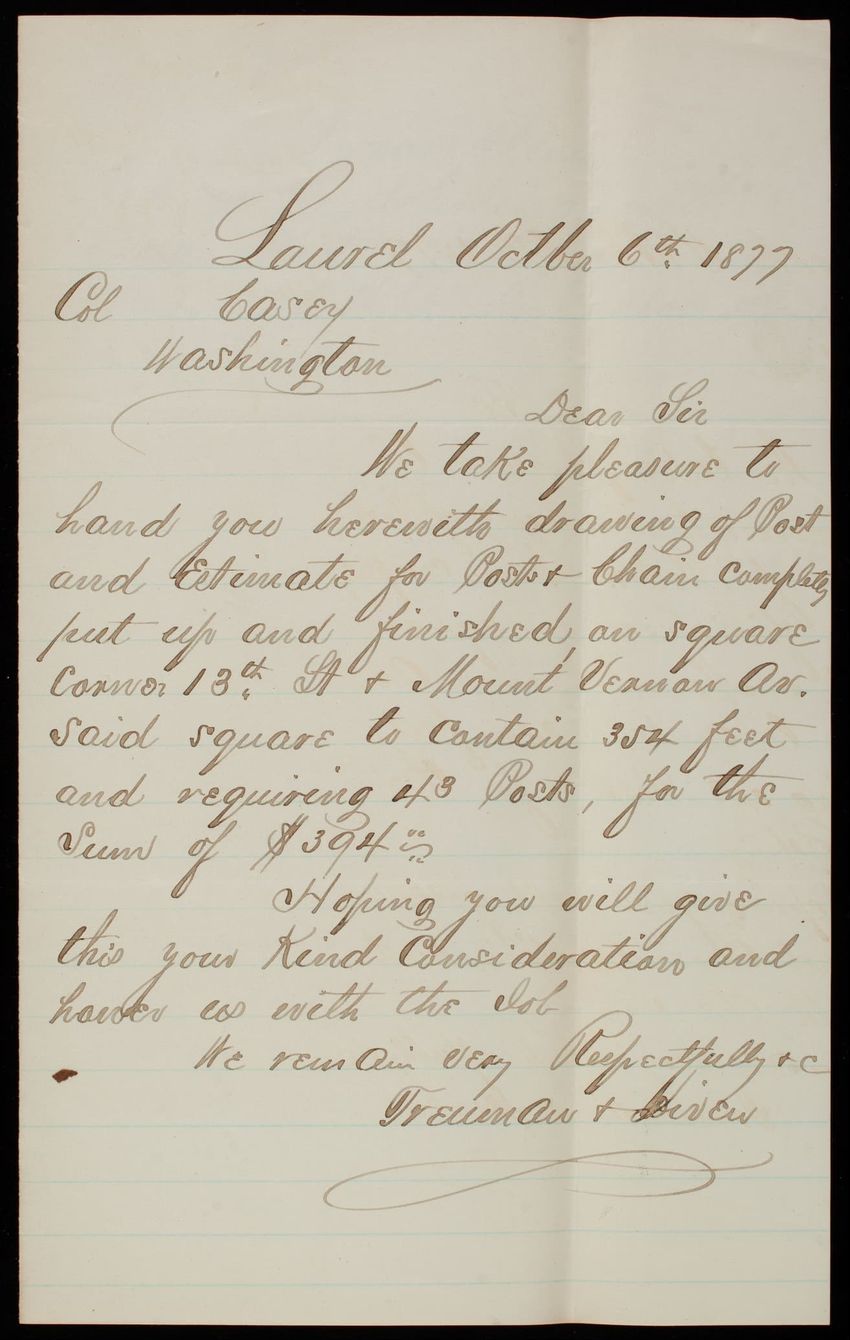 Laurel Octber 6th 1877
Col Casey
Washington
Dear Sir
We take pleasure to
hand you herewith drawing of Post
and Estimate for Posts & Chain completely
put up and finished, on square
Corner 13th St & Mount Vernon Av.
Said square to Contain 354 feet
and requiring 43 Posts, for the
Sum of $394
Hoping you will give
this your Kind Consideration and
honer us with the Job
We remain very Respectfully &c
Treuman &